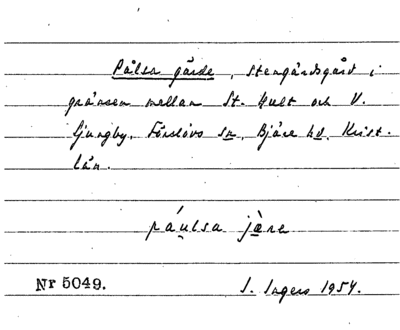 Pålsa gärde, stengärdsgård i
gränsen mellan St. Hult och V.
Ljungby, Förslövs sn, Bjäre hd, Krist.
län.
páu̯lsa jæ̀re
Nr 5049.
I. Ingers 1954.